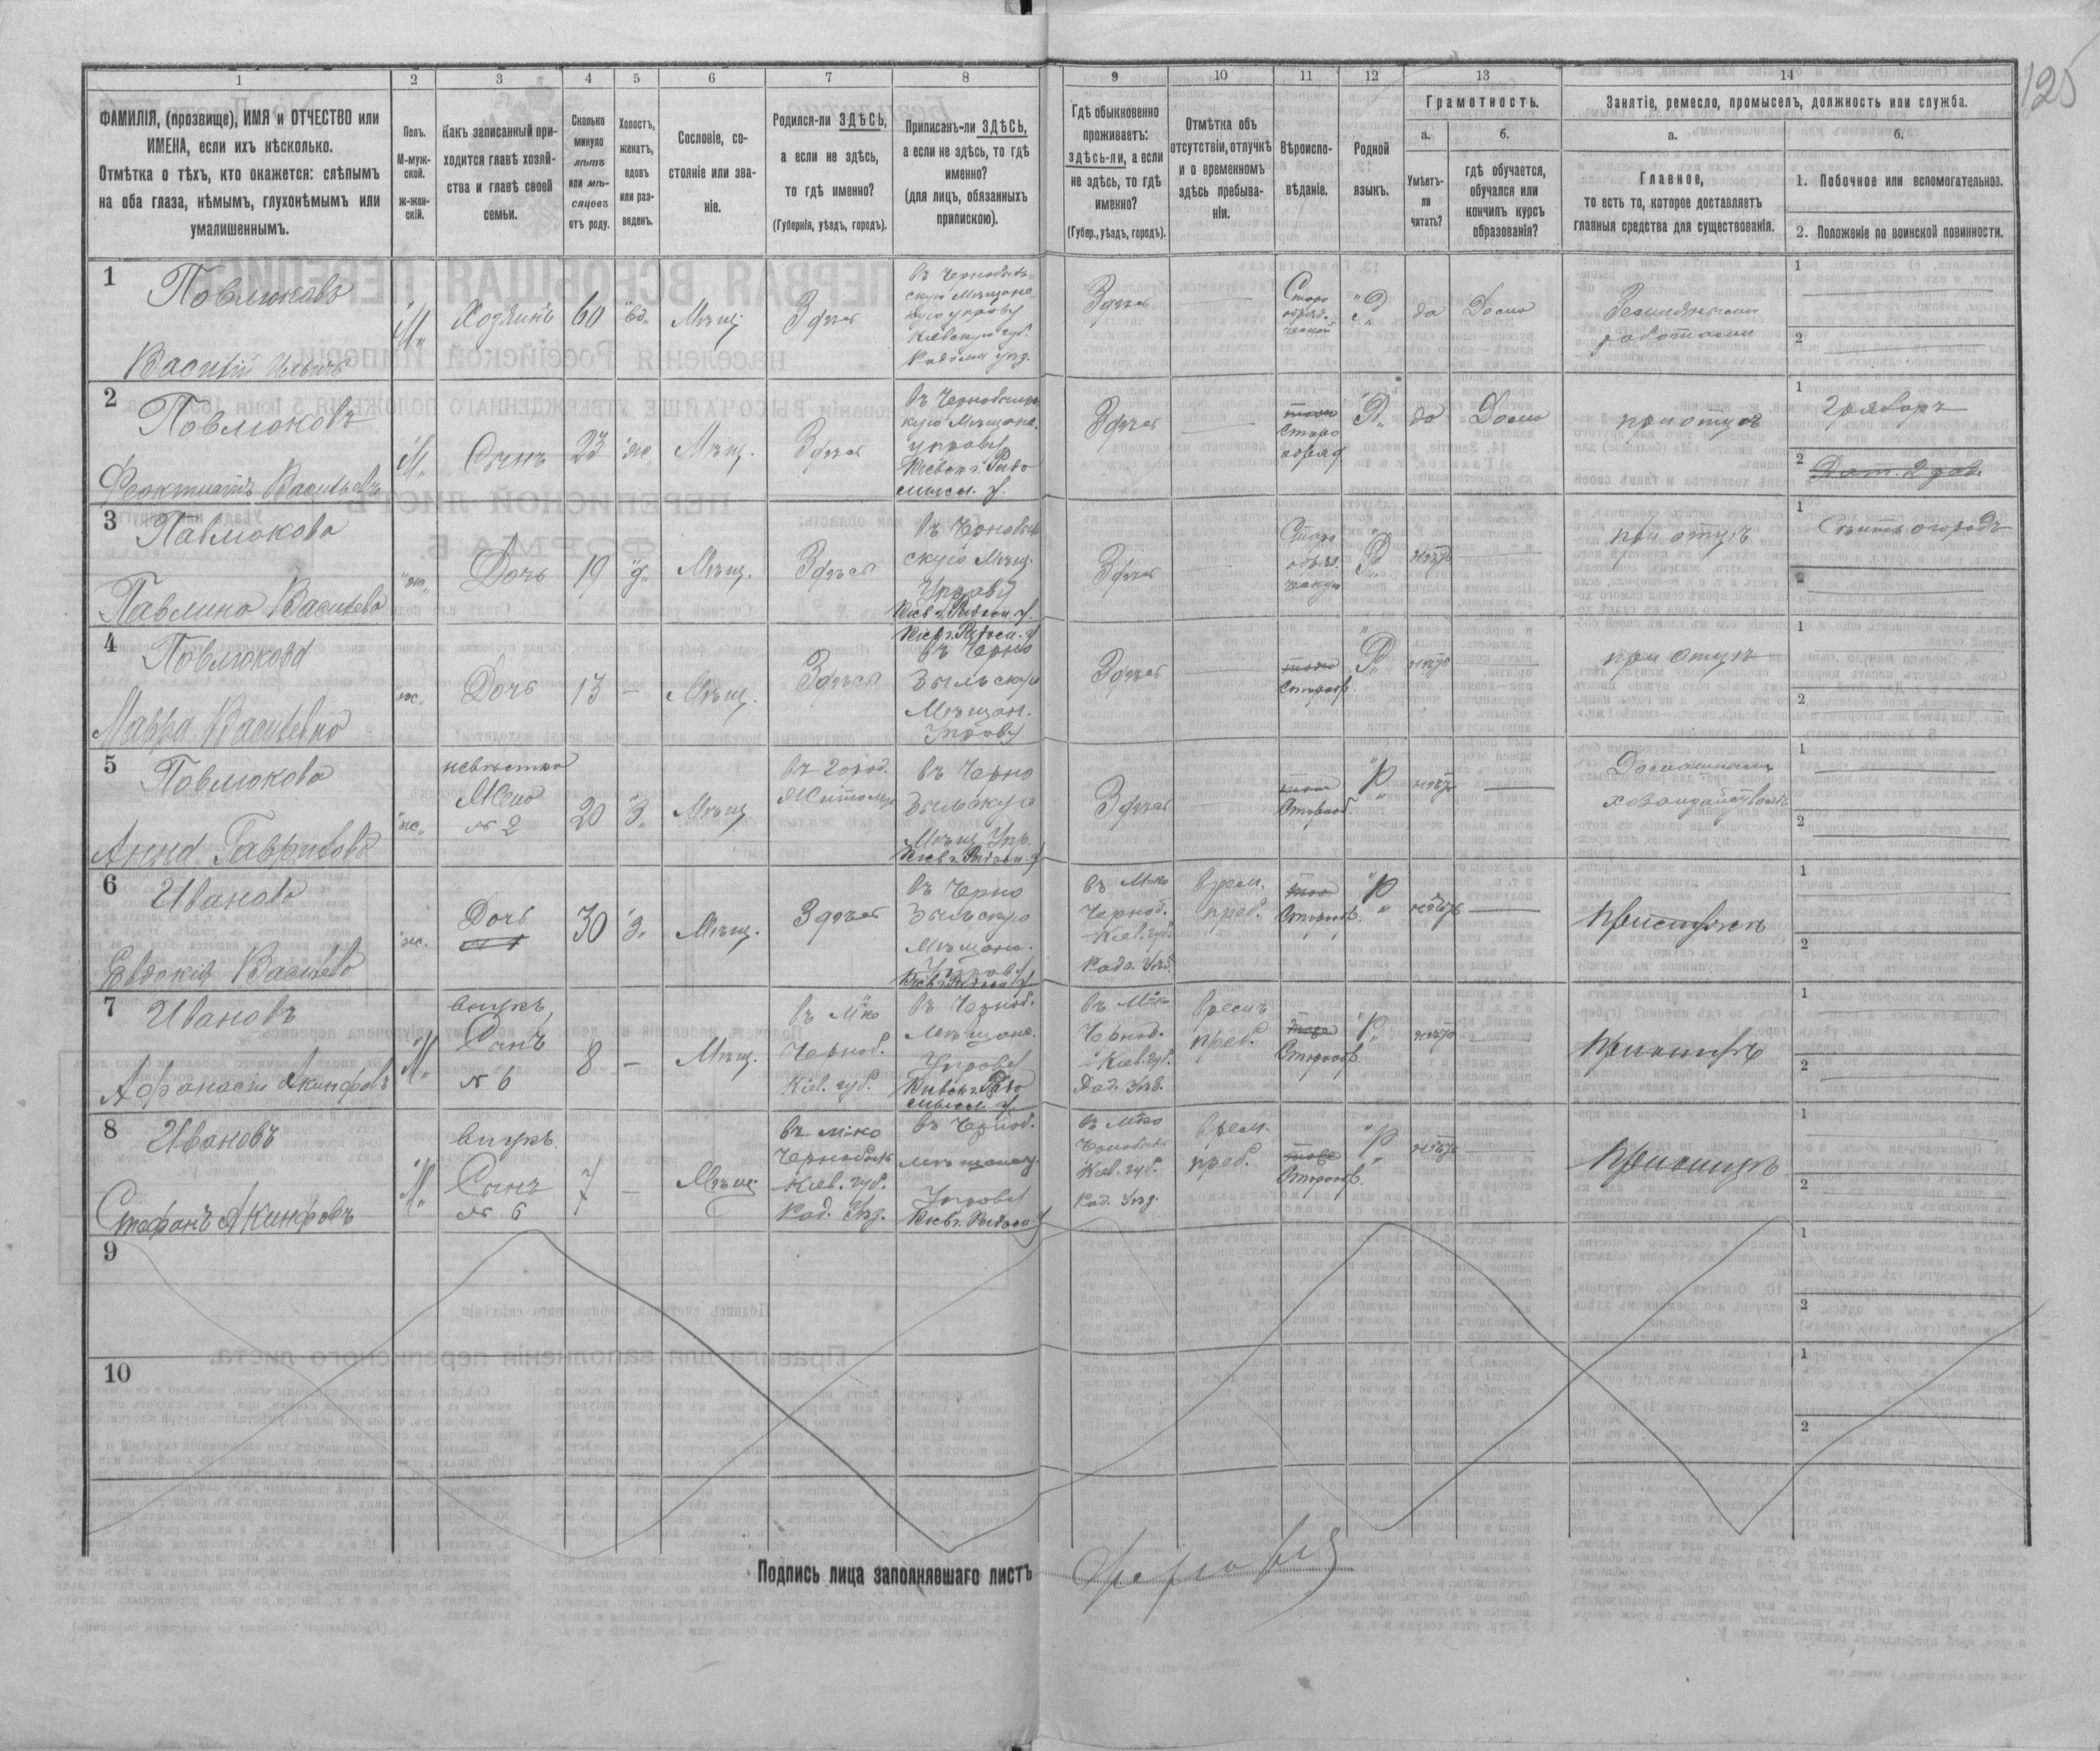 125
1 2 3 4 5 6 7 8 9 10 11 12 13 14
ФАМИЛІЯ, (прозвище), ИМЯ и ОТЧЕСТВО или
ИМЕНА, если ихъ нѣсколько.
Отмѣтка о тѣхъ, кто окажется: слѣпымъ
на оба глаза, нѣмымъ, глухонѣмымъ или
умалишеннымъ.
Полъ.
М-муж-
ской.
ж-жен-
скій.
Какъ записанный при-
ходится главѣ хозяй-
ства и главѣ своей
семьи.
Сколько
минуло
лѣтъ
или мѣ-
сяцевъ
отъ роду.
Холостъ,
женатъ,
вдовъ
или раз-
веденъ.
Сословіе, со-
стояніе или зва-
ніе.
Родился-ли ЗДѢСЬ,
а если не здѣсь,
то гдѣ именно?
(Губернія, уѣздъ, городъ).
Приписанъ-ли ЗДѢСЬ,
а если не здѣсь, то гдѣ
именно?
(для лицъ, обязанныхъ
припискою).
Гдѣ обыкновенно
проживаетъ:
здѣсь-ли, а если
не здѣсь, то гдѣ
именно?
(Губер., уѣздъ, городъ).
Отмѣтка объ
отсутствіи, отлучкѣ
и о временномъ
здѣсь пребыва-
ніи.
Вѣроиспо-
вѣданіе.
Родной
языкъ.
Грамотность.
а.
Умѣетъ-
ли
читать?
б.
гдѣ обучается,
обучался или
кончилъ курсъ
образованія?
Занятіе, ремесло, промыселъ, должность или служба.
а.
Главное,
то есть то, которое доставляетъ
главныя средства для существованія.
б.
1. Побочное или вспомогательное.
2. Положеніе по воинской повинности.
1
Павлюковъ
Василій Ильичъ
"М"
Хозяинъ
60
"вд"
Мѣщ.
Здѣсь
въ Чернобыль-
скую Мѣщанс-
кую управу
Кіевскую губ.
Радомы уѣз.
Здѣсь
—
Старо
обряд-
ческой
"Р"
да
Дома
Земляными
работами
1
2
2
Павлюковъ
Феоктистъ Васильевъ
"М"
Сынъ
23
"ж"
Мѣщ.
Здѣсь
въ Чернобыльс
кую Мѣщанс.
управу
Кіевск г. Радо
мысл. у.
Здѣсь
—
Старо
обряд
"Р"
да
Дома
при отцѣ
1
Грабаръ
2
3
Павлюкова
Павлина Васильева
"ж"
Дочь
19
"д"
Мѣщ.
Здѣсь
въ Чернобыль
скую Мѣщ.
Управу
Кіев г. Радом. у.
Здѣсь
—
Старо
обряд.
"Р"
нѣтъ
—
при отцѣ
1
2
4
Павлюкова
Мавра Васильевна
"ж"
Дочь
13
—
Мѣщ.
Здѣсь
Кіев г. Радом. у
въ Черно
быльскую
Мѣщан.
Управу
Здѣсь
—
Старооб.
"Р"
нѣтъ
—
при отцѣ
1
2
5
Павлюкова
Анна Гаврилова
"ж"
невѣстка
Жена
№ 2
20
"З"
Мѣщ
въ город.
Житоми
въ Черно
быльскую
Мѣщ. Упр.
Кіев г. Радом. у
Здѣсь
Старооб.
"Р"
нѣтъ
—
Домашнимъ
1
2
6
Иванова
Евдокія Васильева
"ж"
Дочь
30
"З"
Мѣщ.
Здѣсь
въ Черно
быльскую
Мѣщанс.
Управу
Кіев г. Радом у
въ М-ко
Черноб.
Кіев. губ.
Радо. Уѣзд.
врем.
преб.
Старооб.
"Р"
нѣтъ
—
1
2
7
Ивановъ
Афанасій Акинфовъ
"М"
внукъ
Сынъ
№ 6
8
—
Мѣщ.
въ М-ко
Черноб.
Кіев. губ.
въ Черноб.
Мѣщанс.
Управу
Кіевск г. Радо
мысл. у.
въ М-ко
Черноб.
Кіев. губ.
Рад. Уѣзд.
времен
преб.
Старооб.
"Р"
нѣтъ
—
1
2
8
Ивановъ
Стефанъ Акинфовъ
"М"
внукъ
Сынъ
№ 6
7
—
Мѣщ.
въ м-ко
Чернобыль
Кіев. губ.
Рад. Уѣз.
въ Черноб.
Мѣщанску
Управу
Кіев г. Радом у
въ М-ко
Чернобыль
Кіев. губ.
Рад. Уѣзд.
врем.
преб.
Старооб.
"Р"
нѣтъ
—
1
2
9
1
2
10
1
2
Подпись лица заполнявшаго листъ